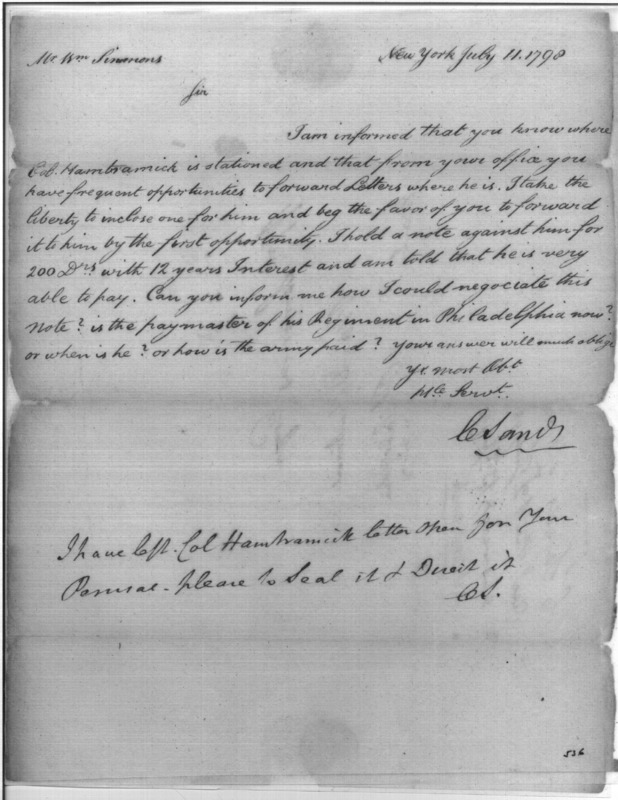 Mr. Wm Simmons
New York July 11. 1798
Sir
I am informed that you know where
Col. Hamtramick is stationed and that from your office you
have frequent opportunities to forward Letters where he is. I take the
liberty to inclose one for him and beg the favor of you to forward
it to him by the first opportunity. I hold a note against him for
200 Drs. with 12 years Interest and am told that he is very
able to pay. Can you inform me how I could negociate this
Note? is the paymaster of his Regiment in Philadelphia now?
or when is he? or how is the army paid? your answer will much oblige
Yr. most Obt
Hle Servt.
C Sands
I have left Col Hamtramick letter open for Your
Perusal - please to Seal it & Direct it
CS.
536